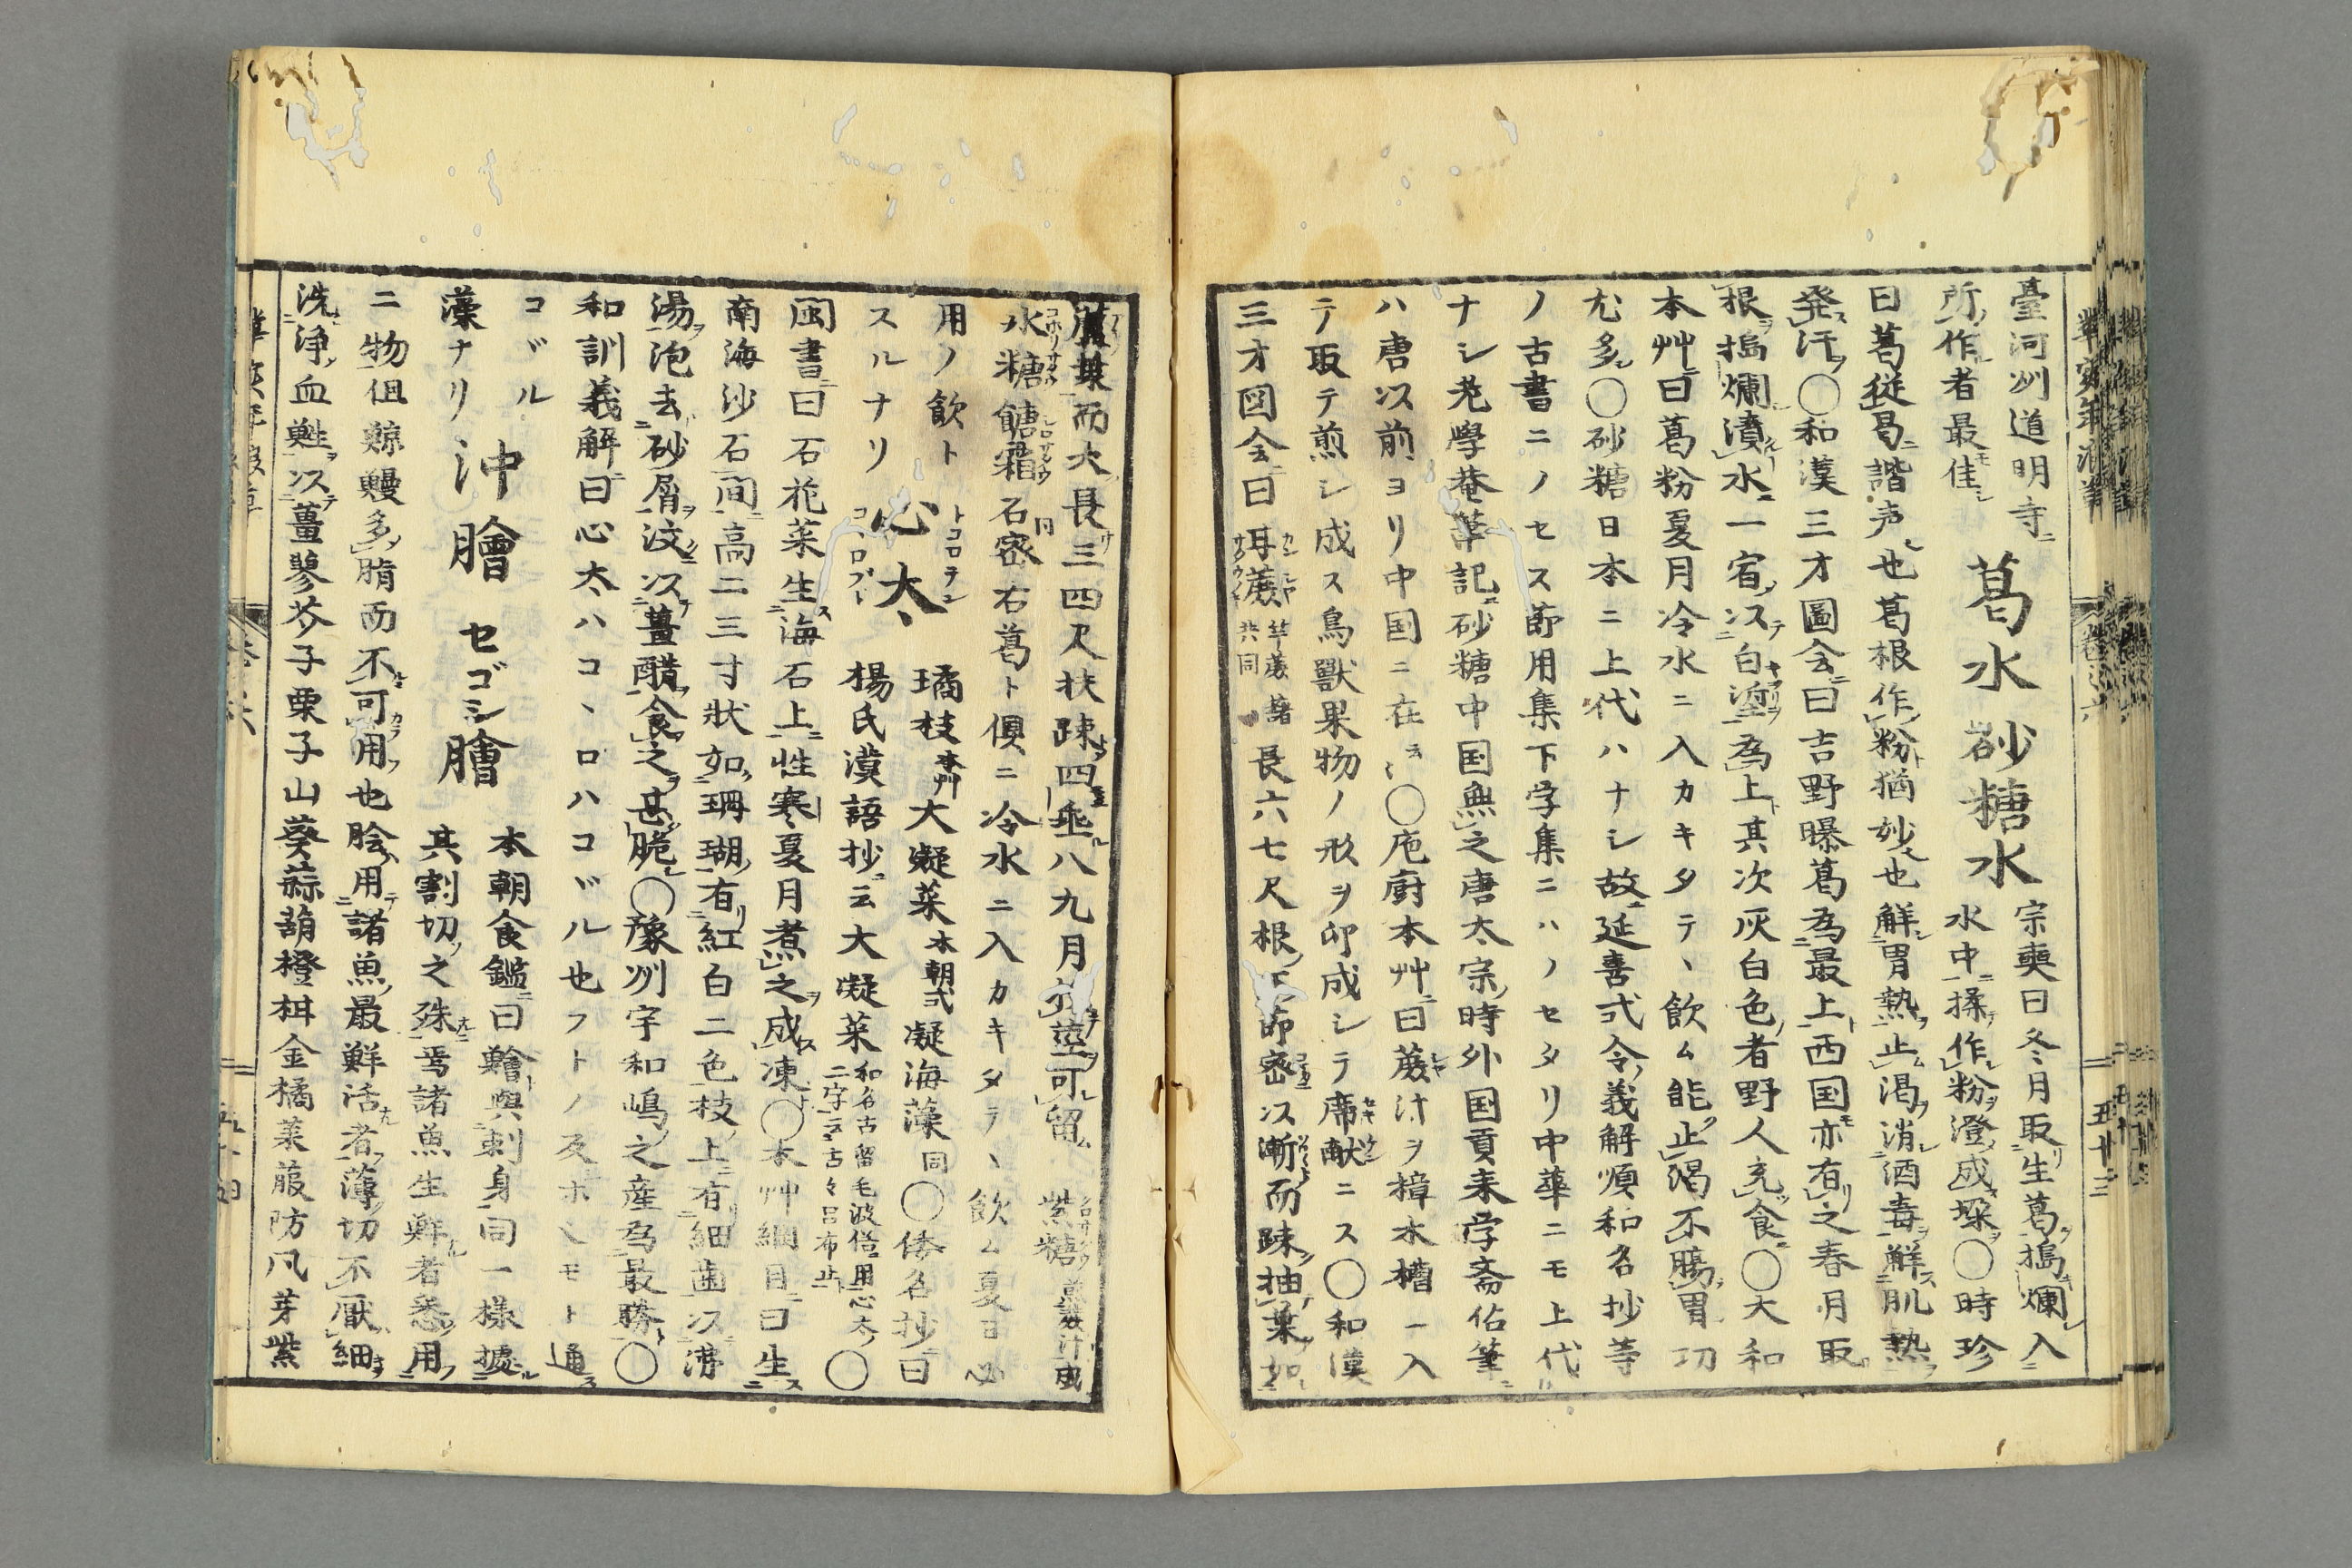 臺河州道明寺ニ
所作者最佳シ
葛水
砂糖水
宗奭曰冬月取生葛搗爛入
水中揉作粉澄成垜○時珍
曰葛従曷諧声也葛根作粉猶妙也解胃熱止渇消酒毒解肌熱
発汗○和漢三才圖会曰吉野曝葛為最上西国亦有之春月取
根搗爛漬水一宿以白瑩為上其次灰白色者野人充食○大和
本艸曰葛粉夏月冷水ニ入カキタテ、飲ム能止渇不腸胃功
尤多○砂糖日本ニ上代ハナシ故延喜式令義解順和名抄等
ノ古書ニノセス節用集下学集ニハノセタリ中華ニモ上代ハ
ナシ老學菴筆記砂糖中国無之唐太宗時外国貢来学斎佔筆
ハ唐以前ヨリ中国ニ在云○庖廚本艸曰蔗汁ヲ樟木槽ニ入
テ取テ煎シ成ス鳥獣果物ノ形ヲ印成シテ席献ニス○和漢
三才図会曰耳蔗 竿蔗 藷 共同 長六七尺根下節密以漸而疎抽葉如
蘆葉而大長三四尺扶疎四垂八九月収莖可留 紫糖
氷糖餹霜石密右葛ト倶ニ冷水ニ入カキタテ、飲ム夏日必
用ノ飲ト
スルナリ
心太
トコロテン
コヽロブト
璚枝 本艸 大凝菜 本朝式 凝海藻 同 ○倭名抄曰
楊氏漢語抄云大凝菜 和名古留毛波俗用心太 二字云古々呂布止 ○
閩書曰石花菜生海石上性寒夏月煮之成凍○本艸綱目曰生
南海沙石間高二三寸狀如珊瑚有紅白二色枝上有細歯以沸
湯泡去砂屑沃以薑醋食之甚脆○豫州宇和嶋之産為最勝○
和訓義解曰心太ハコヽロハコヾル也フトノ及ホヘモト通ス
コヾル
藻ナリ
沖膾
セゴシ膾
本朝食鑑曰鱠與刺身同一様據
其割切之殊焉諸魚生鮮者悉用
ニ物但鯨鰻多脂而不可用也膾用諸魚最鮮活者薄切不厭細
洗浄血甦以薑蓼芥子栗子山葵蒜葫橙柑金橘莱菔防風芽紫